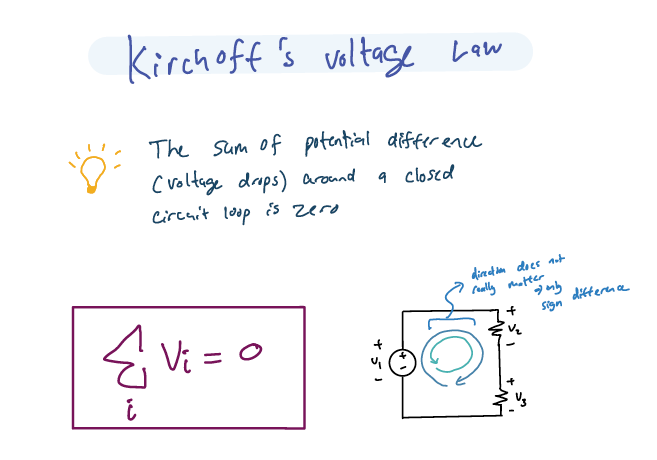 Kirchoff's voltage Law
The sum of potential difference
(voltage drops) around a closed
circuit loop is zero
direction does not
really matter
→ only
sign difference
Σ Vi = 0
i
+
V1
-
+
-
+
V2
-
+
V3
-